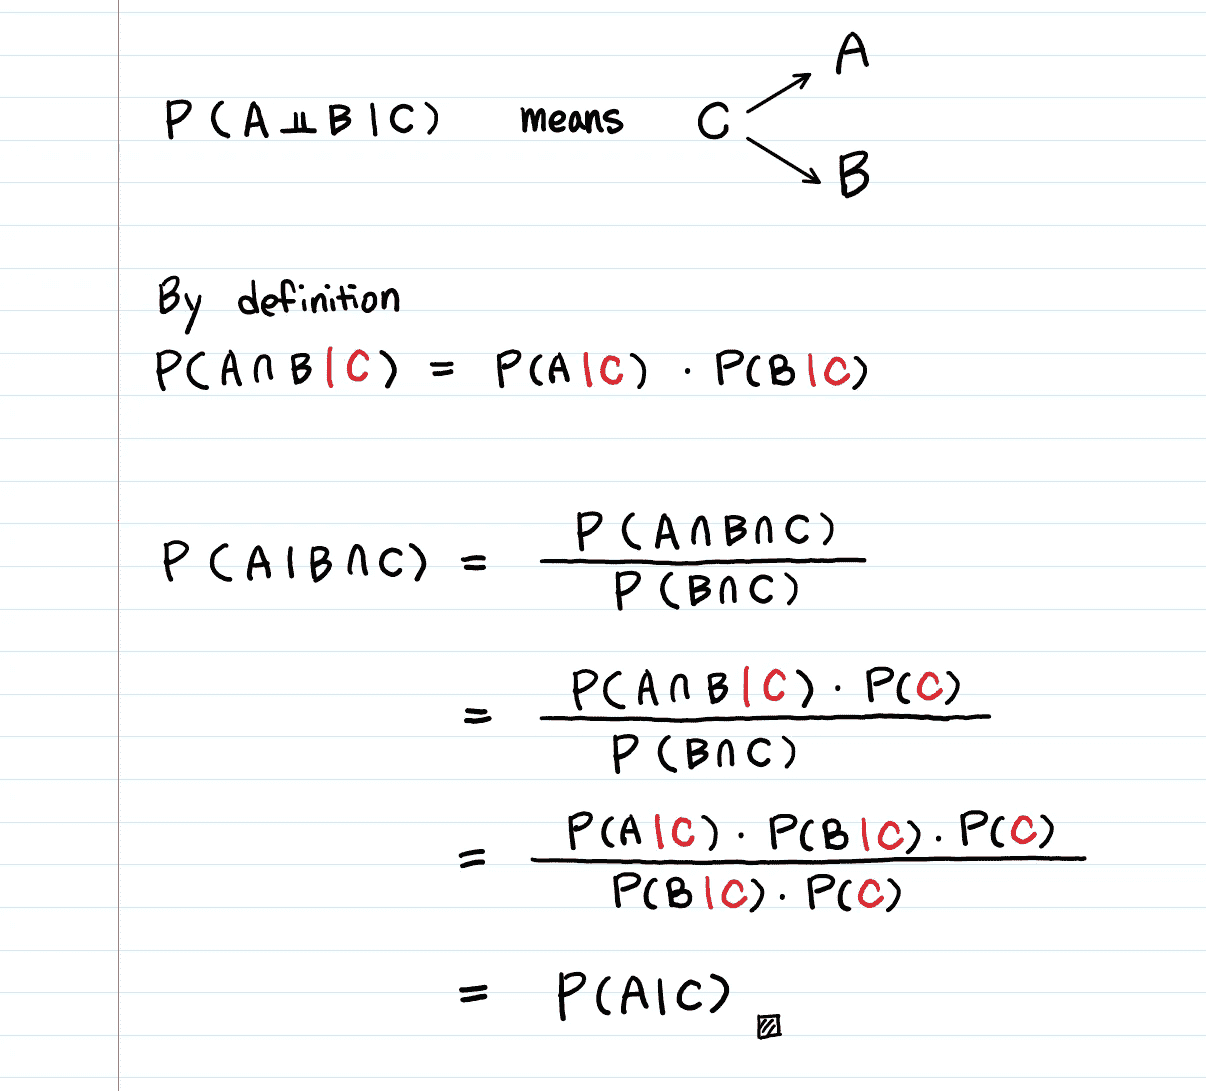 P(A⫫B|C) means C → A
→ B
By definition
P(A∩B|C) = P(A|C) · P(B|C)
P(A|B∩C) = P(A∩B∩C) / P(B∩C)
= P(A∩B|C) · P(C) / P(B∩C)
= P(A|C) · P(B|C) · P(C) / P(B|C) · P(C)
= P(A|C)